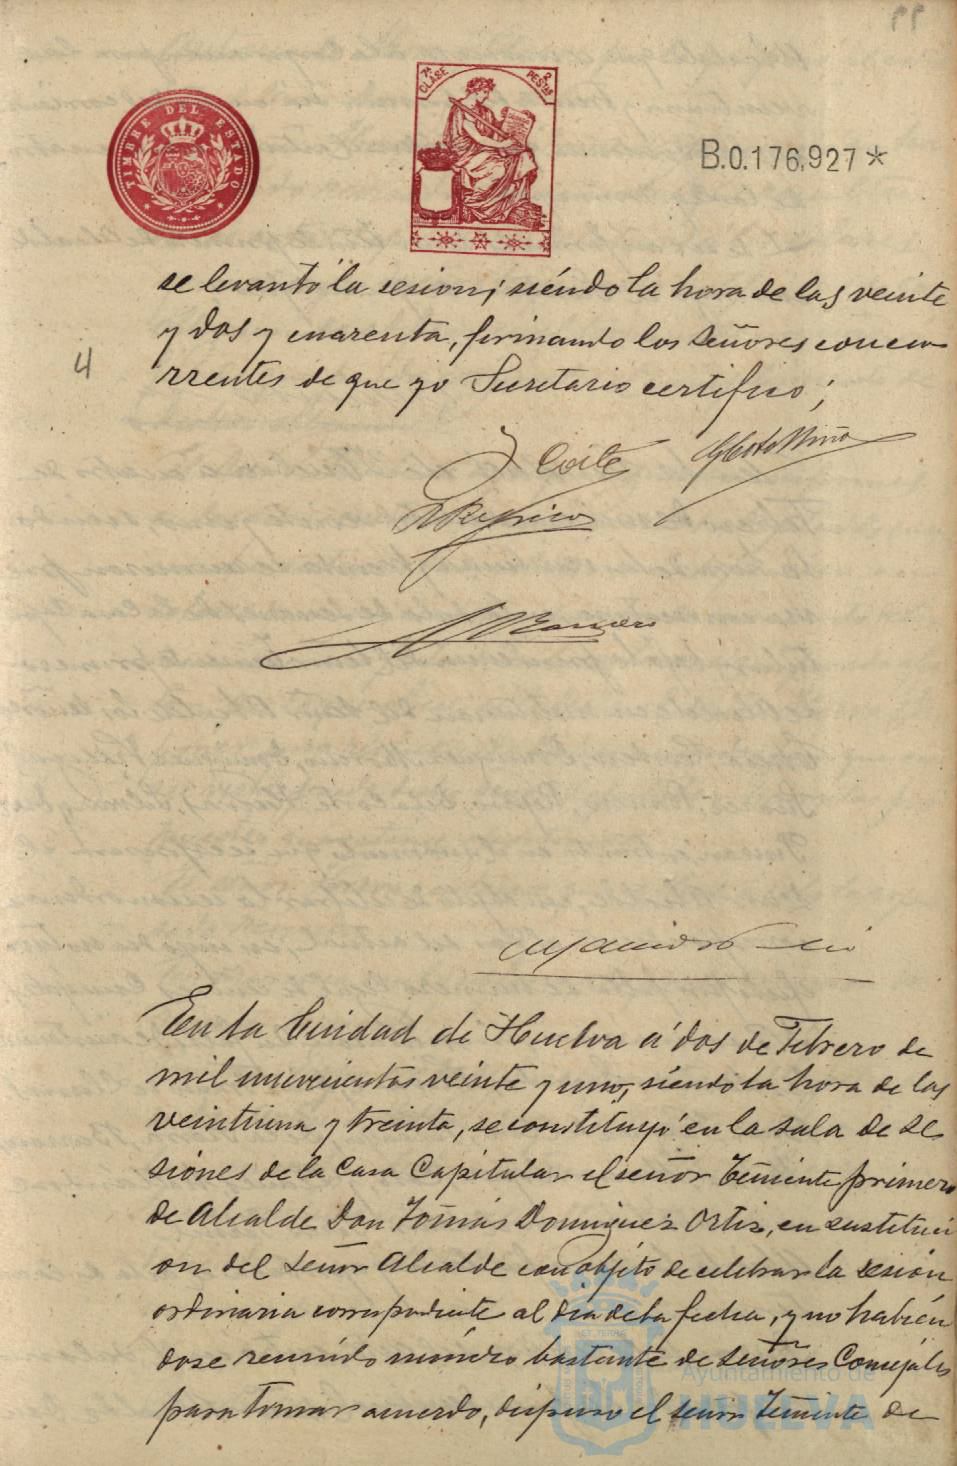 99
TIMBRE DEL ESTADO
7ª CLASE
2 PESTAS
B.0.176,927 *
se levantó la sesion; siéndo la hora de las veinte
y dos y cuarenta, firmando los señores concu
4
rrentes de que yo Secretario certifico;
Coité
En la Ciudad de Huelva á dos de Febrero de
mil novecientos veinte y uno, siéndo la hora de las
veintiuna y treinta, se constituyó en la sala de se
siónes de la Casa Capitular el señor Téniente primero
de Alcalde Don Tomás Dominguez Ortiz, en sustituci
on del Señor Alcalde con objeto de celebrar la sesión
ordinaria correspondiente al dia de la fecha, y no habién
dose reunido número bastante de Señores Concejales
para tomar acuerdo, dispuso el señor Téniente de
Ayuntamiento de
HUELVA